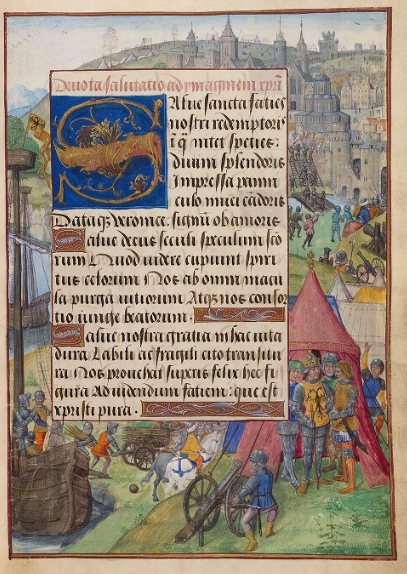 Deuota salutatio ad ymaginem xpri
Salue sancta facies
nostri redemptoris
ī q̄ nitet species:
diuini splendoris
Impressa panni
culo niuei cādoris
Dataq; veronice. signū ob amoris
Salue decus seculi speculum sco
rum Quod videre cupiunt spiri
tus celorum Nos ab omni macu
la purga vitiorum Atq; nos consor
tio iunge beatorum.
Salue nostra gratia in hac vita
dura Labili ac fragili cito transitu
ra Nos prouehat superis felix hec fi
gura Ad uidendum faciem: que est
xpristi pura.